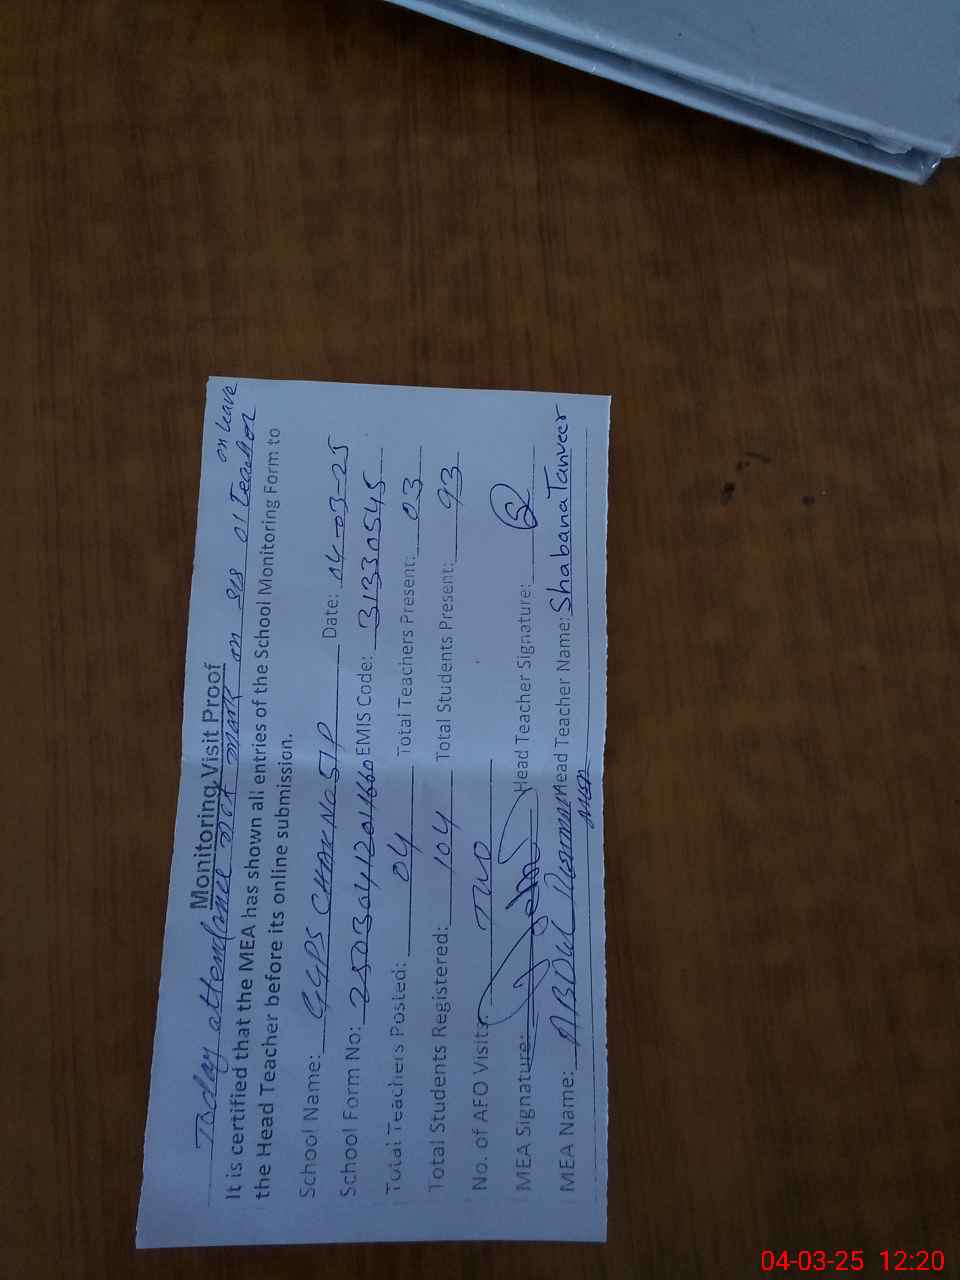 Monitoring Visit Proof
Today attendance not mark on SIS 01 Teacher on leave
It is certified that the MEA has shown all entries of the School Monitoring Form to
the Head Teacher before its online submission.
School Name: GGPS CHAK No 51P Date: 04-03-25
School Form No: EMIS Code: 31330545
Total Teachers Posted: 04 Total Teachers Present: 03
Total Students Registered: 104 Total Students Present: 93
No. of AFO Visits TWO
MEA Signature: Head Teacher Signature:
MEA Name: ABDUL Head Teacher Name: Shabana Tanveer
04-03-25 12:20